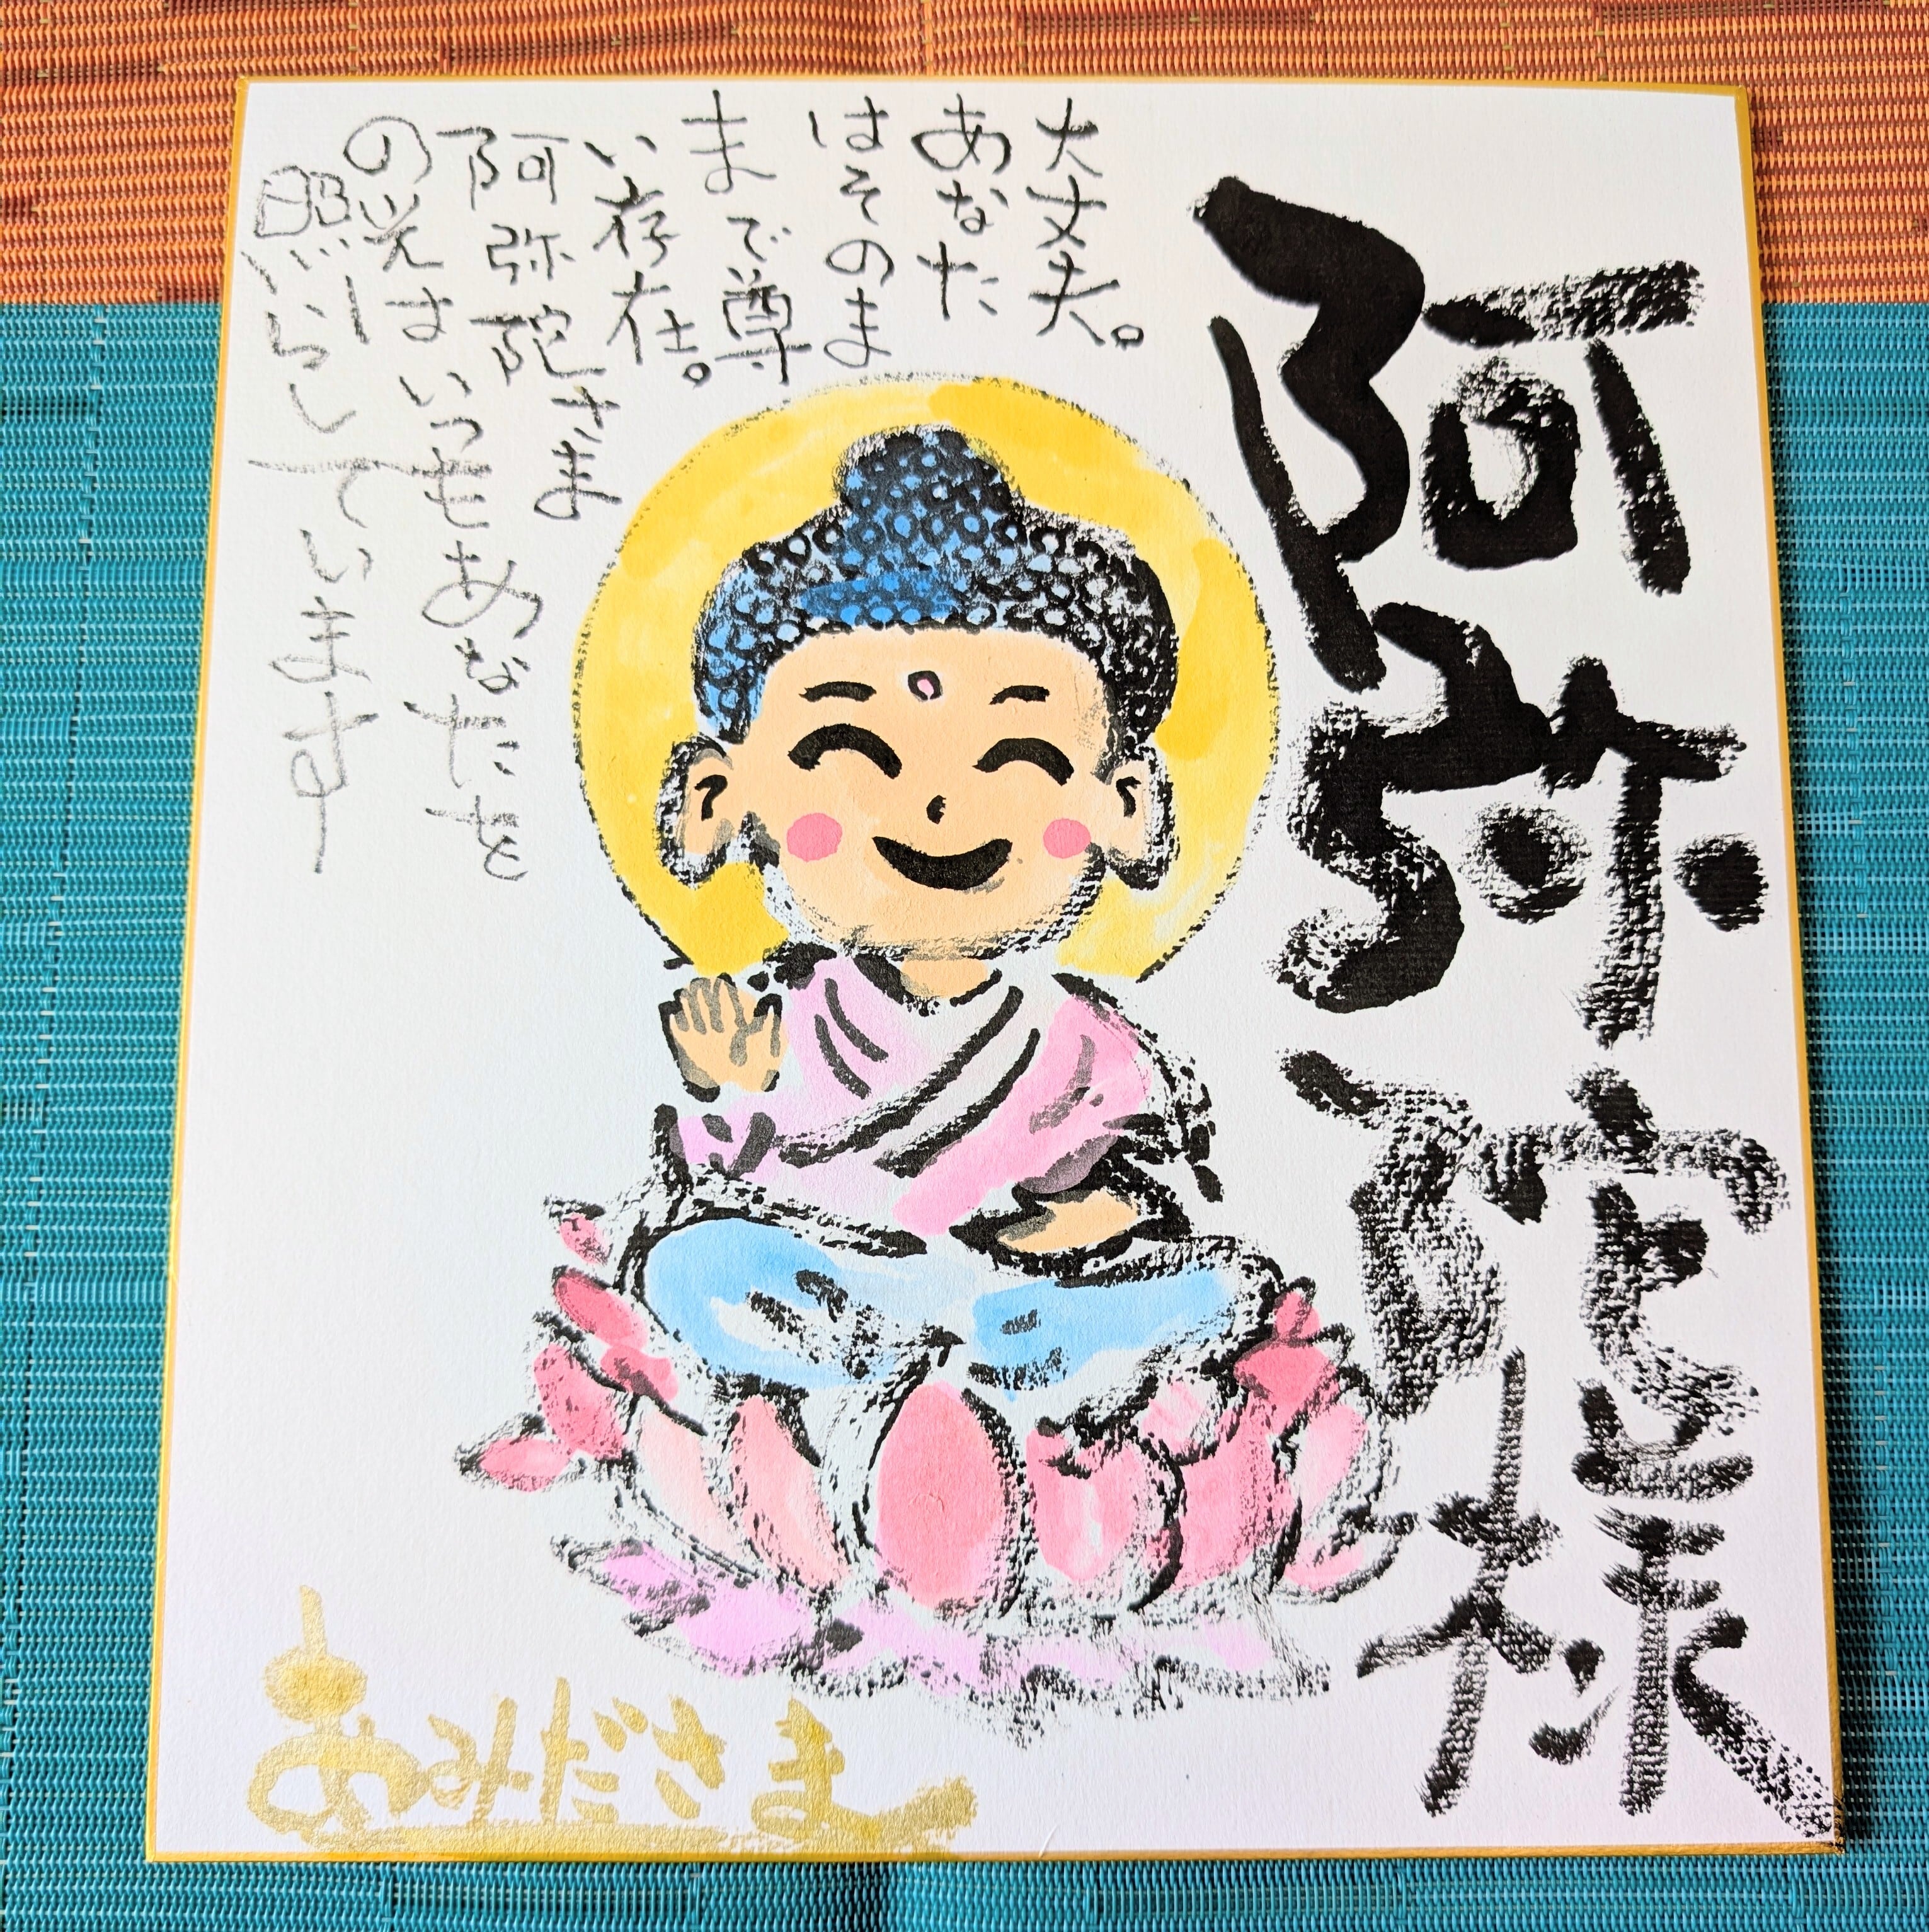 阿弥陀様
大丈夫。
あなた
はそのま
まで尊
い存在。
阿弥陀さま
の光はいつもあなたを
照らしています
あみださま